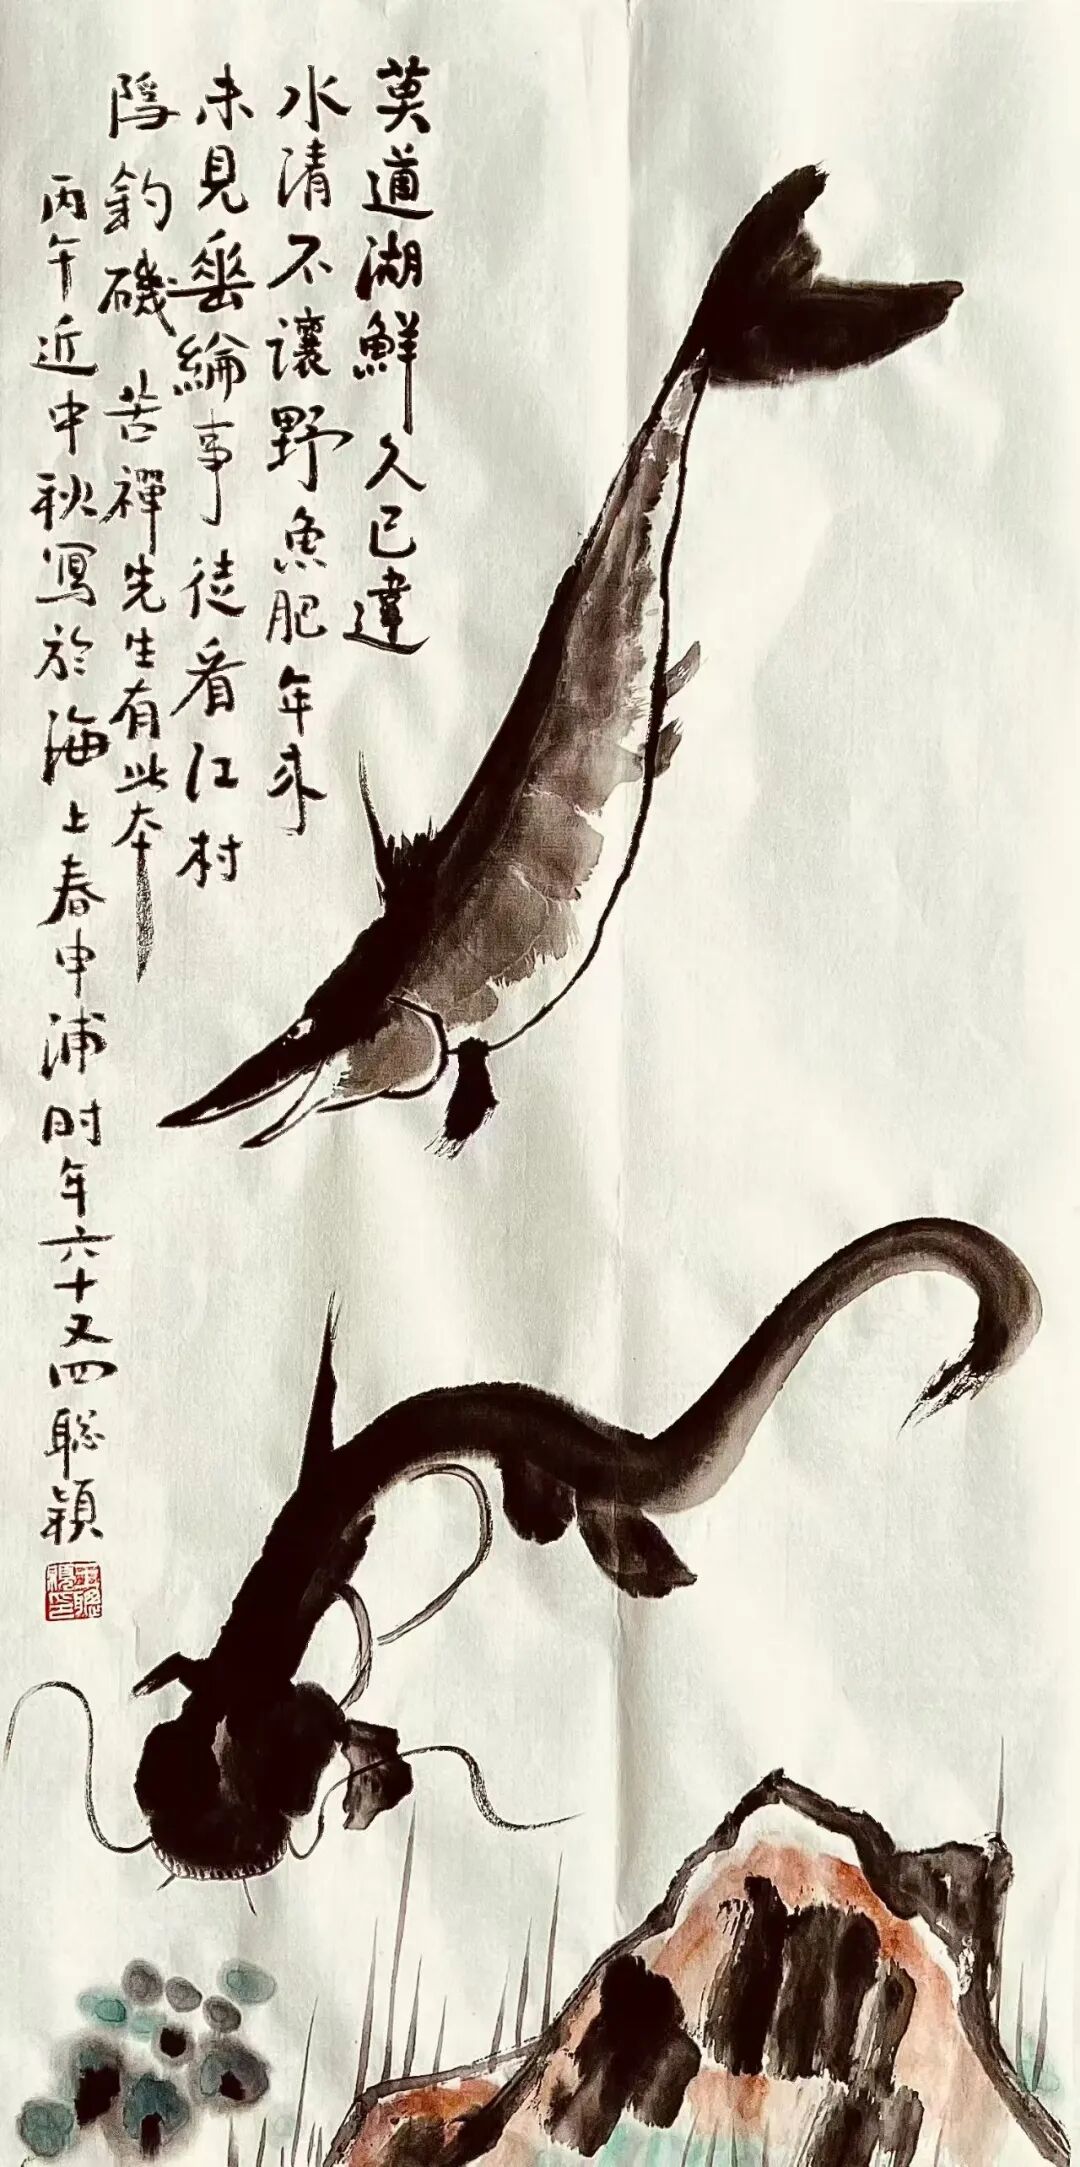 莫道湖鮮久已違
水清不讓野魚肥年来
未見垂綸事徒看江村
隱釣磯 苦禪先生有此本
丙午近中秋寫於海上春申浦时年六十又四聪穎
王聰穎印